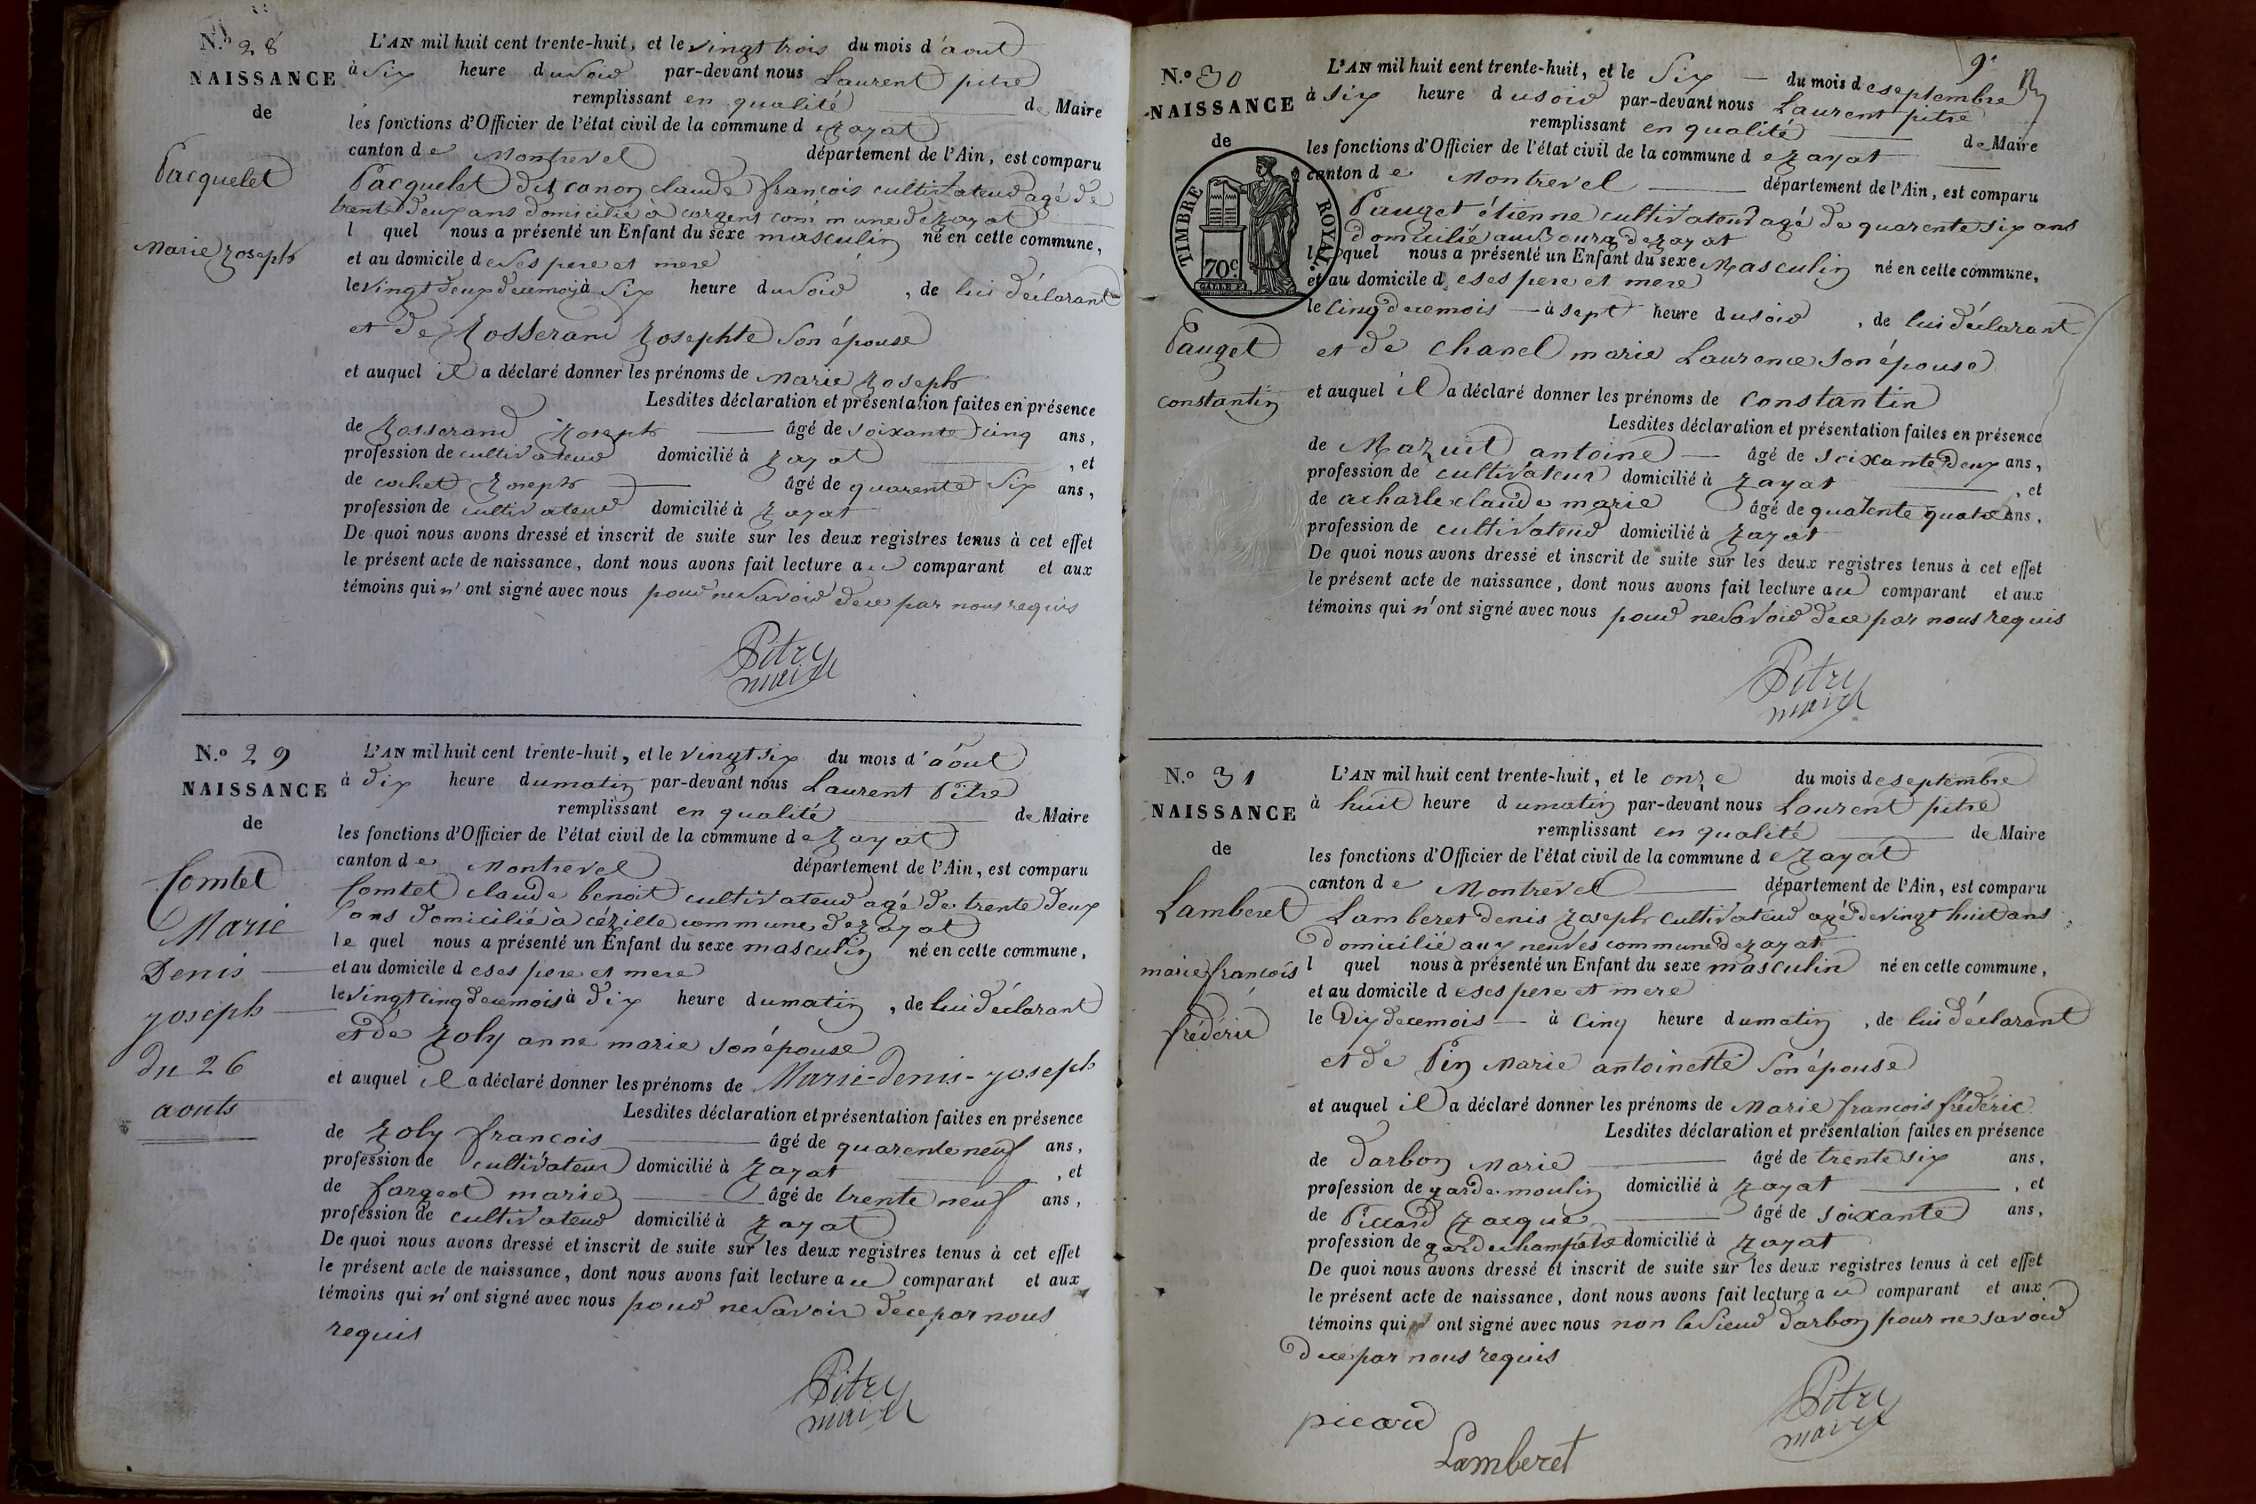 N.º 28
NAISSANCE
de
Pacquelet
Marie Joseph
L'AN mil huit cent trente-huit, et le vingt trois du mois d'aout
à Six heure du Soir par-devant nous Laurent pitre
remplissant en qualité de Maire
les fonctions d'Officier de l'état civil de la commune de Jayat
canton de Montrevel département de l'Ain, est comparu
Pacquelet dit canon claude francois cultivateur agé de
trente deux ans domicilié à corgens commune de Jayat
l quel nous a présenté un Enfant du sexe masculin né en cette commune,
et au domicile de ses pere et mere
le vingt deux de ce mois à Six heure du Soir, de lui déclarant
et de Josserand Josephte Son épouse
et auquel il a déclaré donner les prénoms de Marie Joseph
Lesdites déclaration et présentation faites en présence
de Josserand Joseph âgé de soixante cinq ans,
profession de cultivateur domicilié à Jayat, et
de cochet Joseph âgé de quarente Six ans,
profession de cultivateur domicilié à Jayat
De quoi nous avons dressé et inscrit de suite sur les deux registres tenus à cet effet
le présent acte de naissance, dont nous avons fait lecture au comparant et aux
témoins qui n'ont signé avec nous pour ne Savoir de ce par nous requis
Pitre
maire
N.º 29
NAISSANCE
de
Comtet
Marie
Denis
joseph
du 26
aouts
L'AN mil huit cent trente-huit, et le vingt six du mois d'aout
à dix heure du matin par-devant nous Laurent Pitre
remplissant en qualité de Maire
les fonctions d'Officier de l'état civil de la commune de Jayat
canton de Montrevel département de l'Ain, est comparu
Comtet claude benoit cultivateur agé de trente deux
ans domicilié à cézille commune de Jayat
le quel nous a présenté un Enfant du sexe masculin né en cette commune,
et au domicile de ses pere et mere
le vingt cinq de ce mois à dix heure du matin, de lui déclarant
et de Joly anne marie son épouse
et auquel il a déclaré donner les prénoms de Marie-denis-joseph
Lesdites déclaration et présentation faites en présence
de Joly francois âgé de quarente neuf ans,
profession de cultivateur domicilié à Jayat, et
de fargeot marie âgé de trente neuf ans,
profession de cultivateur domicilié à Jayat
De quoi nous avons dressé et inscrit de suite sur les deux registres tenus à cet effet
le présent acte de naissance, dont nous avons fait lecture au comparant et aux
témoins qui n'ont signé avec nous pour ne Savoir de ce par nous
requis
Pitre
maire
9e
N.º 30
NAISSANCE
de
TIMBRE ROYAL.
70c
Pauget
constantin
L'AN mil huit cent trente-huit, et le Six du mois de septembre
à Six heure du soir par-devant nous Laurent pitre
remplissant en qualité de Maire
les fonctions d'Officier de l'état civil de la commune de Jayat
canton de Montrevel département de l'Ain, est comparu
Pauget étienne cultivateur agé de quarente six ans
domicilié au Bourg de Jayat
l quel nous a présenté un Enfant du sexe Masculin né en cette commune,
et au domicile de ses pere et mere
le Cinq de ce mois à sept heure du soir, de lui déclarant
et de Chanel marie Laurence Son épouse
et auquel il a déclaré donner les prénoms de Constantin
Lesdites déclaration et présentation faites en présence
de Mazuit antoine âgé de soixante deux ans,
profession de cultivateur domicilié à Jayat, et
de acharle claude marie âgé de quatente quatre ans,
profession de cultivateur domicilié à Jayat
De quoi nous avons dressé et inscrit de suite sur les deux registres tenus à cet effet
le présent acte de naissance, dont nous avons fait lecture au comparant et aux
témoins qui n'ont signé avec nous pour ne Savoir de ce par nous requis
Pitre
maire
N.º 31
NAISSANCE
de
Lamberet
marie francois
fréderic
L'AN mil huit cent trente-huit, et le onze du mois de septembre
à huit heure du matin par-devant nous Laurent pitre
remplissant en qualité de Maire
les fonctions d'Officier de l'état civil de la commune de Jayat
canton de Montrevel département de l'Ain, est comparu
Lamberet denis Joseph cultivateur agé de vingt huit ans
domicilié aux neuves commune de Jayat
l quel nous a présenté un Enfant du sexe masculin né en cette commune,
et au domicile de ses pere et mere
le Dix de ce mois à Cinq heure du matin, de lui déclarant
et de Pin Marie antoinette Son épouse
et auquel il a déclaré donner les prénoms de Marie francois frédéric
Lesdites déclaration et présentation faites en présence
de Darbon Marie âgé de trente six ans,
profession de garde moulin domicilié à Jayat, et
de Piccard Jacque âgé de soixante ans,
profession de garde champetre domicilié à Jayat
De quoi nous avons dressé et inscrit de suite sur les deux registres tenus à cet effet
le présent acte de naissance, dont nous avons fait lecture au comparant et aux
témoins qui ont signé avec nous non le Sieur Darbon pour ne savoir
de ce par nous requis
picard
Lamberet
Pitre
maire